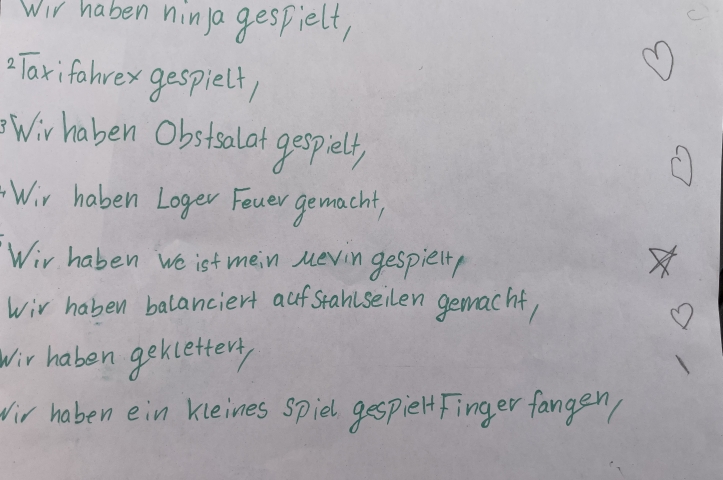 Wir haben ninja gespielt,
2 Taxifahrex gespielt,
3 Wir haben Obstsalat gespielt,
Wir haben Loger Feuer gemacht,
Wir haben we ist mein gespielt,
Wir haben balanciert auf Stahlseilen gemacht,
Wir haben geklettert,
Wir haben ein kleines Spiel gespielt Finger fangen,